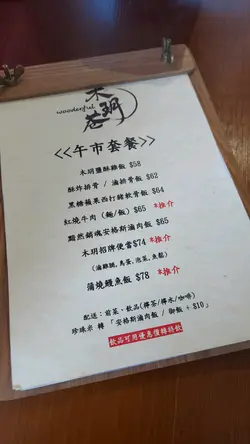 木玥巷
wooderful
<<午市套餐>>
木玥鹽酥雞飯 $58
酥炸排骨 / 滷排骨飯 $62
黑糖蘋果西打豬軟骨飯 $64
紅燒牛肉 (麵/飯) $65 *推介
黯然銷魂安格斯滷肉飯 $65
木玥招牌便當$74 *推介
(滷雞腿,烏蛋,泡菜,魚鬆)
蒲燒鰻魚飯 $78 *推介
配送:前菜、飲品(檸茶/檸水/咖啡)
珍珠米 轉 「安格斯滷肉飯 / 御飯 +$10」
飲品可用優惠價轉特飲